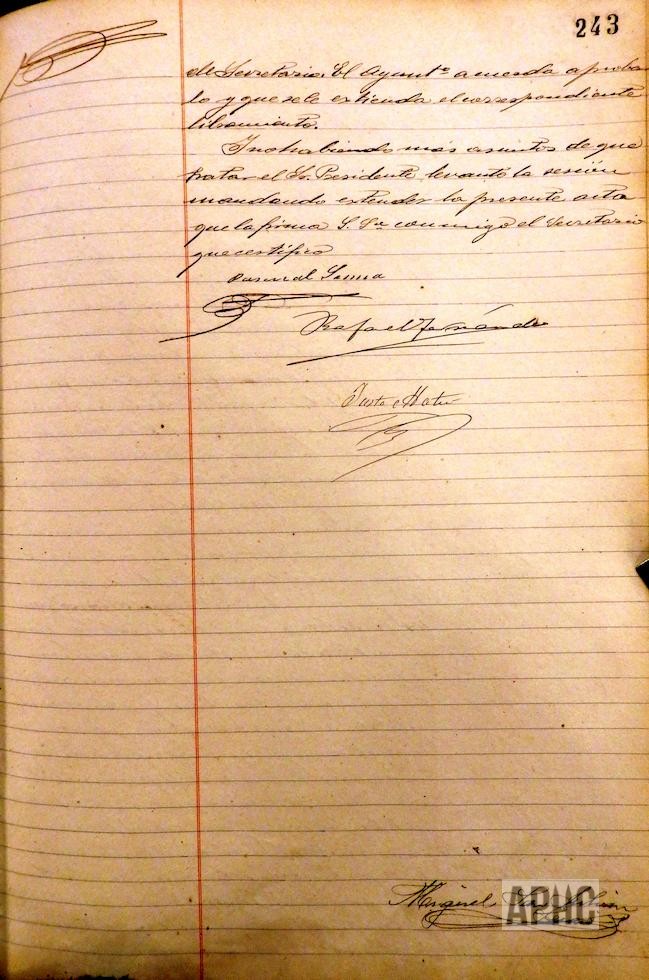 243
de Secretario. El Ayuntº acuerda aproba
lo y que se le extienda el correspondiente
libramiento.
Y no habiendo más asuntos de que
tratar el Sr. Presidente levantó la sesión
mandando extender la presente acta
que la firma S. Sª conmigo el Secretario
que certifico
Rafael Fernández
Justo Mateu
Miguel
APHC